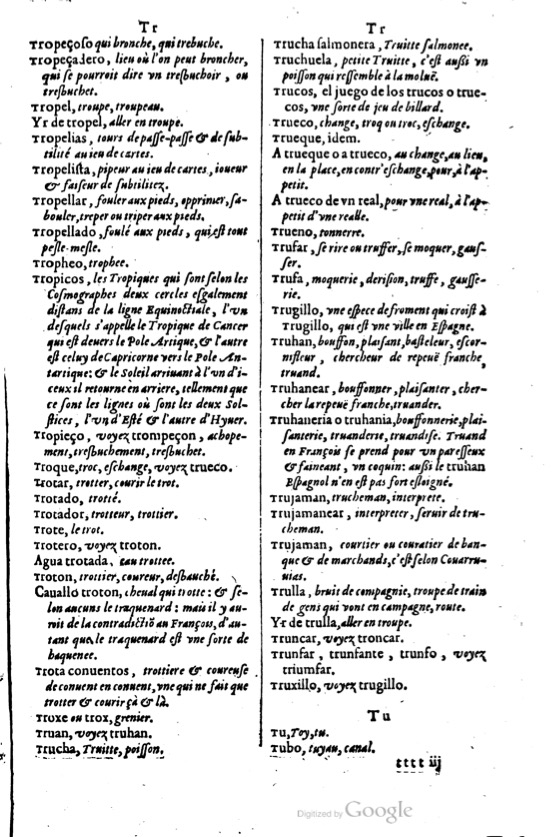 Tr
Tropeçoso qui bronche, qui trebuche.
Tropeçadero, lieu où l'on peut broncher,
qui se pourroit dire vn tresbuchoir, ou
tresbuchet.
Tropel, troupe, troupeau.
Yr de tropel, aller en troupe.
Tropelias, tours de passe-passe & de sub-
tilité au ieu de cartes.
Tropelista, pipeur au ieu de cartes, ioueur
& faiseur de subtilitez.
Tropellar, fouler aux pieds, opprimer, sa-
bouler, treper ou triper aux pieds.
Tropellado, foulé aux pieds, qui est tout
pesle-mesle.
Tropheo, trophee.
Tropicos, les Tropiques qui sont selon les
Cosmographes deux cercles esgalement
distans de la ligne Equinoctiale, l'vn
desquels s'appelle le Tropique de Cancer
qui est deuers le Pole Artique, & l'autre
est celuy de Capricorne vers le Pole An-
tartique: & le Soleil arriuant à l'vn d'i-
ceux il retourne en arriere, tellement que
ce sont les lignes où sont les deux Sol-
stices, l'vn d'Esté & l'autre d'Hyuer.
Tropieço, voyez trompeçon, achope-
ment, tresbuchement, tresbuchet.
Troque, troc, eschange, voyez trueco.
Trotar, trotter, courir le trot.
Trotado, trotté.
Trotador, trotteur, trottier.
Trote, le trot.
Trotero, voyez troton.
Agua trotada, eau trottee.
Troton, trottier, coureur, desbauché.
Cauallo troton, cheual qui trotte: & se-
lon aucuns le traquenard: mais il y au-
roit de la contradictiõ au François, d'au-
tant que le traquenard est vne sorte de
haquenee.
Trota conuentos, trottiere & coureuse
de conuent en conuent, vne qui ne fait que
trotter & courir çà & là.
Troxe ou trox, grenier.
Truan, voyez truhan.
Trucha, Truitte, poisson.
Tr
Trucha salmonera, Truitte salmonee.
Truchuela, petite Truitte, c'est aussi vn
poisson qui ressemble à la moluë.
Trucos, el juego de los trucos o true-
cos, vne sorte de jeu de billard.
Trueco, change, troq ou troc, eschange.
Trueque, idem.
A trueque o a trueco, au change, au lieu,
en la place, en contr'eschange, pour, à l'ap-
petit.
A trueco de vn real, pour vne real, à l'ap-
petit d'vne realle.
Trueno, tonnerre.
Trufar, se rire ou truffer, se moquer, gaus-
ser.
Trufa, moquerie, derision, truffe, gausse-
rie.
Trugillo, vne espece de froment qui croist à
Trugillo, qui est vne ville en Espagne.
Truhan, bouffon, plaisant, basteleur, escor-
nifleur, chercheur de repeuë franche,
truand.
Truhanear, bouffonner, plaisanter, cher-
cher la repeuë franche, truander.
Truhaneria o truhania, bouffonnerie, plai-
santerie, truanderie, truandise. Truand
en François se prend pour vn paresseux
& faineant, vn coquin: aussi le truhan
Espagnol n'en est pas fort esloigné.
Trujaman, trucheman, interprete.
Trujamanear, interpreter, seruir de tru-
cheman.
Trujaman, courtier ou couratier de ban-
que & de marchands, c'est selon Couarru-
uias.
Trulla, bruit de compagnie, troupe de train
de gens qui vont en campagne, route.
Yr de trulla, aller en troupe.
Truncar, voyez troncar.
Trunfar, trunfante, trunfo, voyez
triumfar.
Truxillo, voyez trugillo.
Tu
Tu, Toy, tu.
Tubo, tuyau, canal.
tttt iij
Digitized by Google